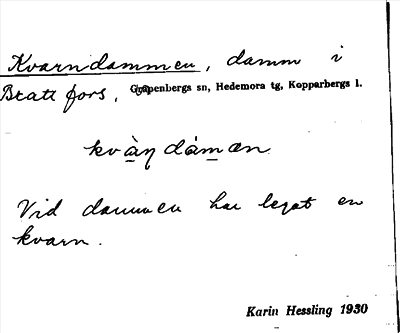 Kvarndammen, damm i
Bratt fors, Grytenbergs sn, Hedemora tg, Kopparbergs l.
kvàṇ dámæn
Vid dammen har legat en
kvarn.
Karin Hessling 1930